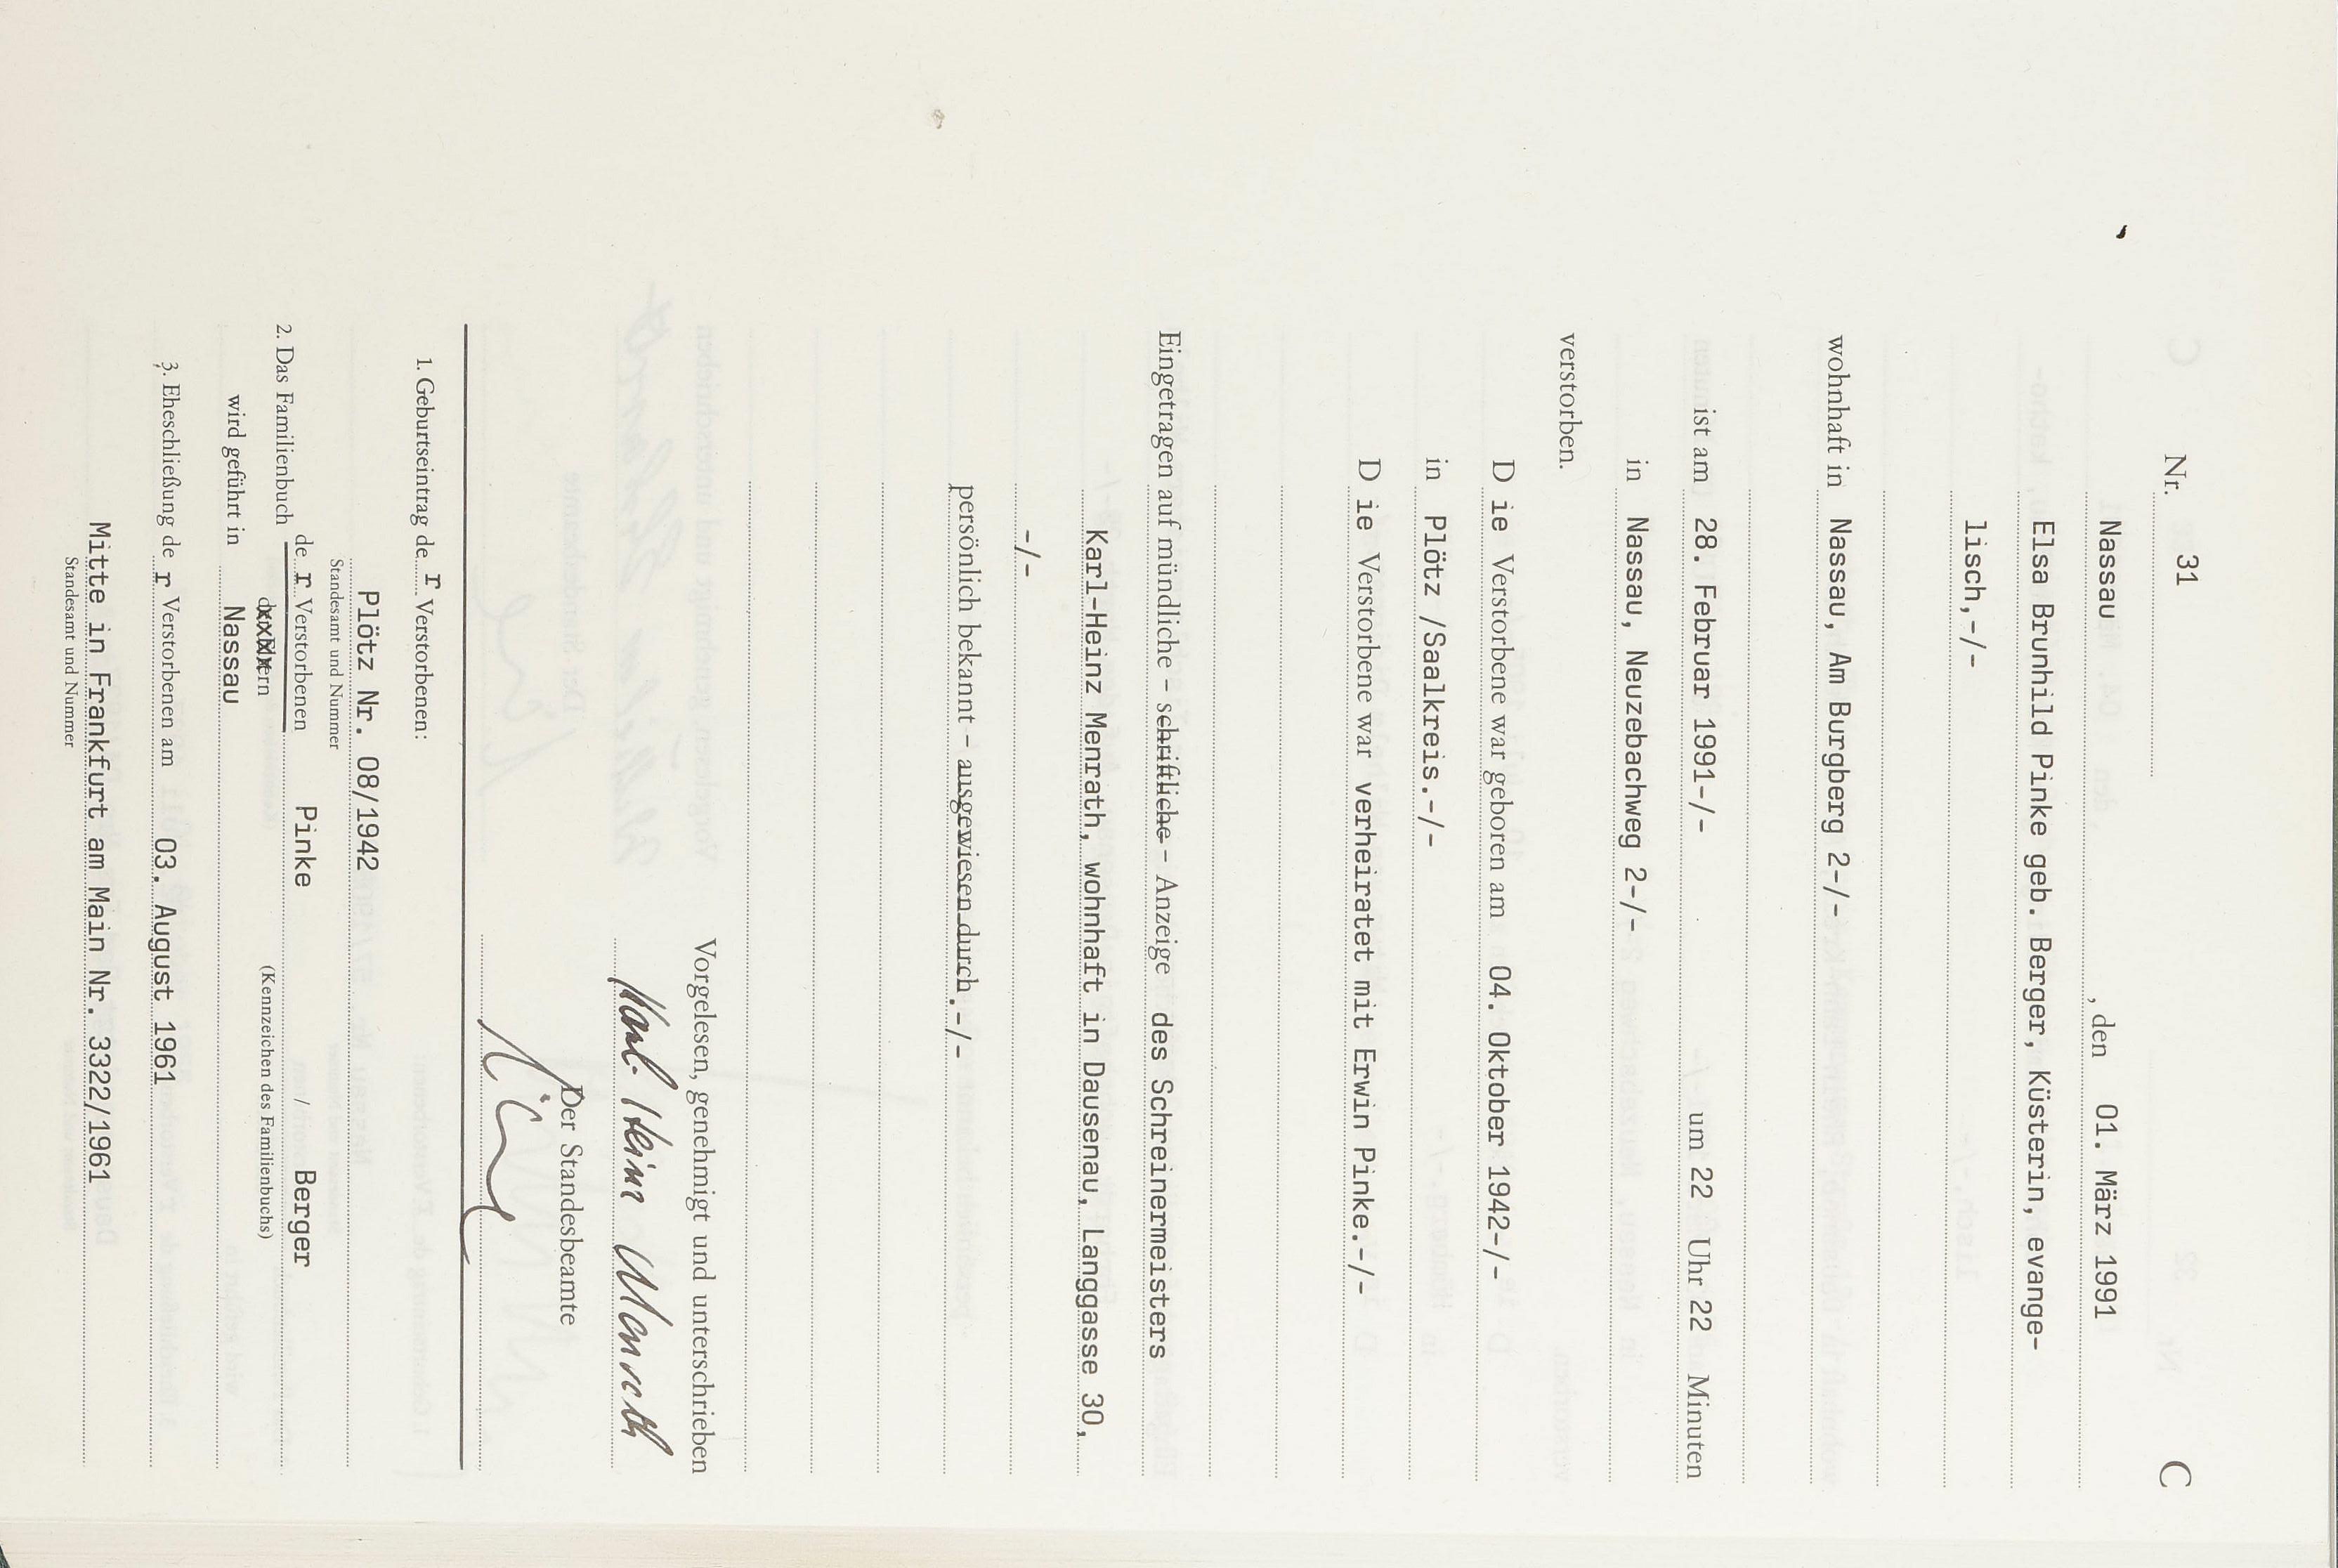 C
Nr. 31
Nassau , den 01. März 1991
Elsa Brunhild Pinke geb. Berger, Küsterin, evange-
lisch,-/-
wohnhaft in Nassau, Am Burgberg 2-/-
ist am 28. Februar 1991-/- um 22 Uhr 22 Minuten
in Nassau, Neuzebachweg 2-/-
verstorben.
D ie Verstorbene war geboren am 04. Oktober 1942-/-
in Plötz /Saalkreis.-/-
D ie Verstorbene war verheiratet mit Erwin Pinke.-/-
Eingetragen auf mündliche – schriftliche – Anzeige des Schreinermeisters
Karl-Heinz Menrath, wohnhaft in Dausenau, Langgasse 30,
-/-
persönlich bekannt – ausgewiesen durch.-/-
Vorgelesen, genehmigt und unterschrieben
Karl-Heinz Menrath
Der Standesbeamte
1. Geburtseintrag de r Verstorbenen:
Plötz Nr. 08/1942
Standesamt und Nummer
2. Das Familienbuch de r Verstorbenen Pinke / Berger
ern (Kennzeichen des Familienbuchs)
wird geführt in Nassau
3. Eheschließung de r Verstorbenen am 03. August 1961
Mitte in Frankfurt am Main Nr. 3322/1961
Standesamt und Nummer